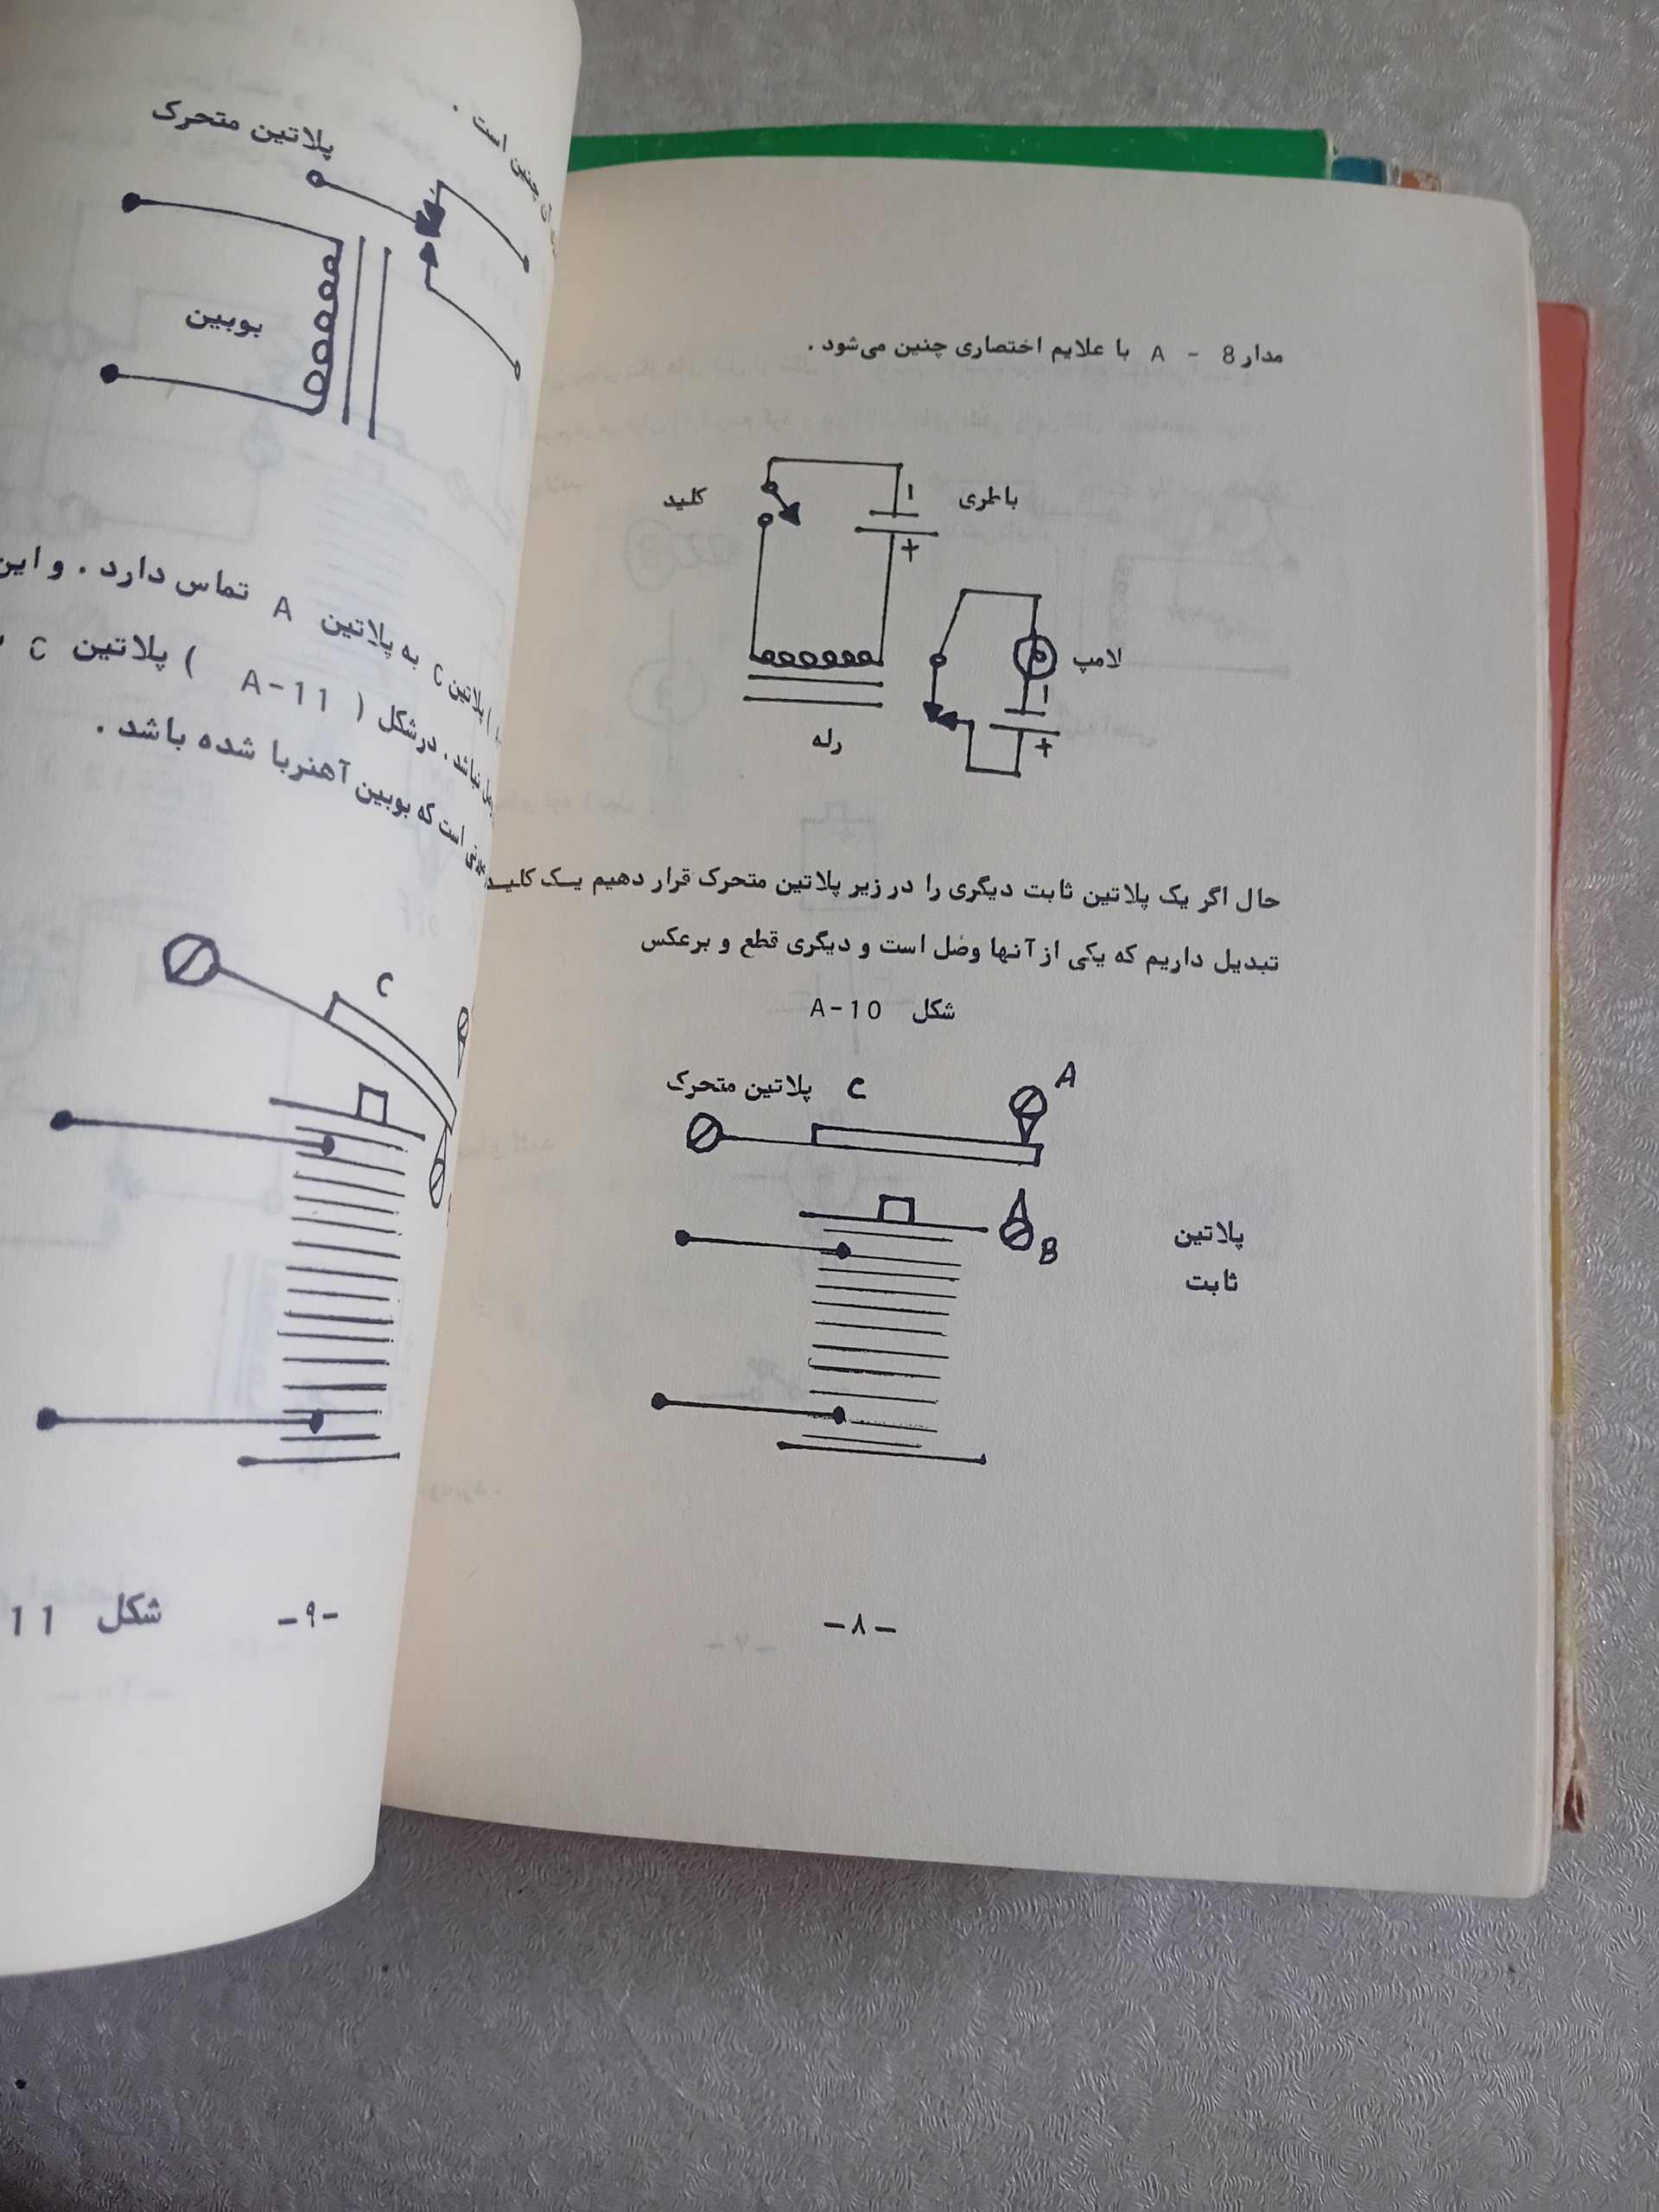 مدار A - 8 با علایم اختصاری چنین می‌شود .
کلید
باطری
-
+
لامپ
-
+
رله
حال اگر یک پلاتین ثابت دیگری را در زیر پلاتین متحرک قرار دهیم یک کلید
تبدیل داریم که یکی از آنها وصل است و دیگری قطع و برعکس
شکل A-10
پلاتین متحرک C
A
B
پلاتین
ثابت
-۸-
چنین است .
پلاتین متحرک
بوبین
) پلاتین C به پلاتین A تماس دارد . و این
نباشد . درشکل ( A-11 ) پلاتین C
است که بوبین آهنربا شده باشد .
C
شکل 11
-۹-